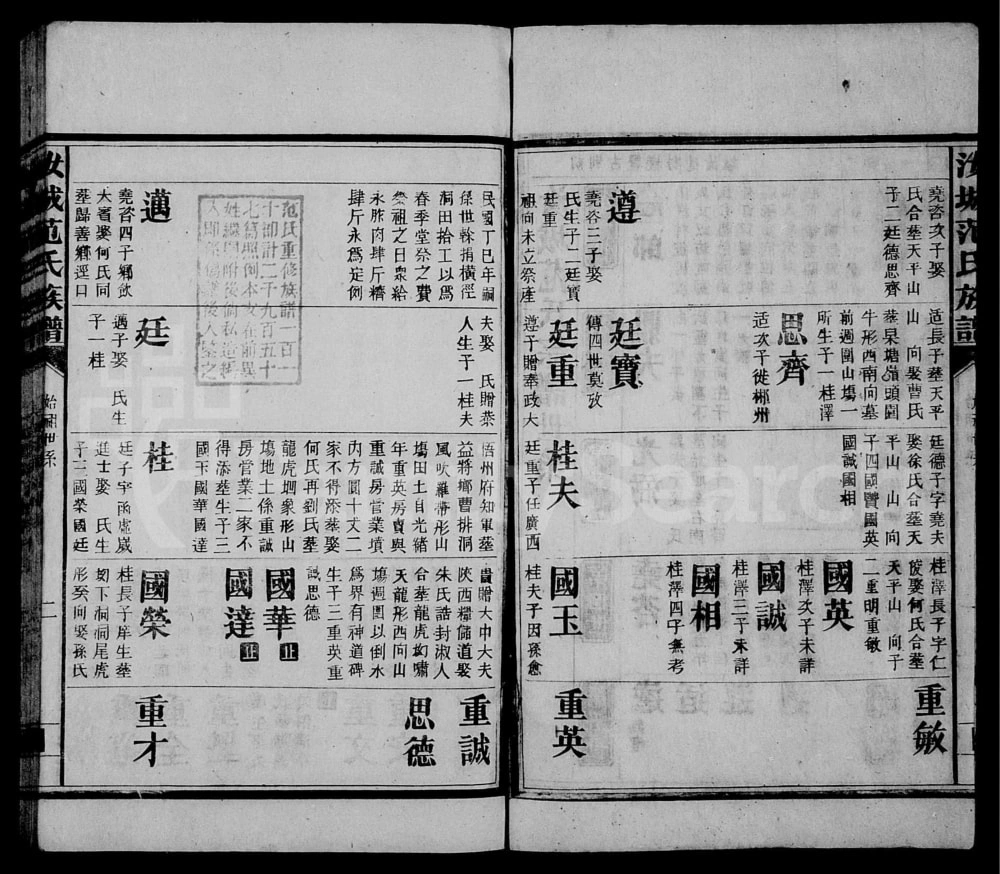 汝城范氏族譜
堯咨次子娶
氏合塟天平山
子二廷德思齊
遵
堯咨三子娶
氏生子二廷寶
廷重
祖向未立祭產
适長子塟天平
山 向娶曹氏
塟杲塘嶺頭園
牛形西南向墓
前週圍山塲一
所生子一桂澤
思齊
适次子徙郴州
廷寶
傳四世莫攷
廷重
遵子贈奉政大
廷德子字堯夫
娶徐氏合塟天
平山 山 向
子四國寶國英
國誠國相
桂夫
廷重子任廣西
桂澤長子字仁
俊娶何氏合塟
天平山 向子
二重明重敏
國英
桂澤次子未詳
國誠
桂澤三子未詳
國相
桂澤四子無考
國玉
桂夫子因孫愈
重敏
重英
民國丁巳年嗣
孫世榦捐橫徑
洞田拾工以爲
春季堂祭之費
祭祖之日衆給
永胙肉肆斤糯
肆斤永爲定例
范氏重修族譜一百一
十部計二千九百五十
邁
堯咨四子鄉飲
大賓娶何氏同
塟歸善鄉逕口
夫娶 氏贈恭
人生子一桂夫
廷
邁子娶 氏生
子一桂
梧州府知軍塟
益將鄉曹排洞
風吹羅帶形山
塲田土自光緒
年重英房賣與
重誠房管業墳
內方圓十丈二
家不得添塟娶
何氏再劉氏塟
龍虎堋象形山
塲地土係重誠
房管業二家不
得添塟生子三
國玉國華國達
桂
廷子字函虛歲
進士娶 氏生
子三國榮國廷
貴贈大中大夫
陝西糧儲道娶
朱氏誥封淑人
合塟龍虎坳嘯
天龍形西向山
塲週圍以倒水
爲界有神道碑
生子三重英重
誠思德
國華止
國達止
國榮
桂長子庠生塟
坳下洞洞尾虎
形癸向娶孫氏
重誠
思德
重才
汝城范氏族譜
始祖世系
二